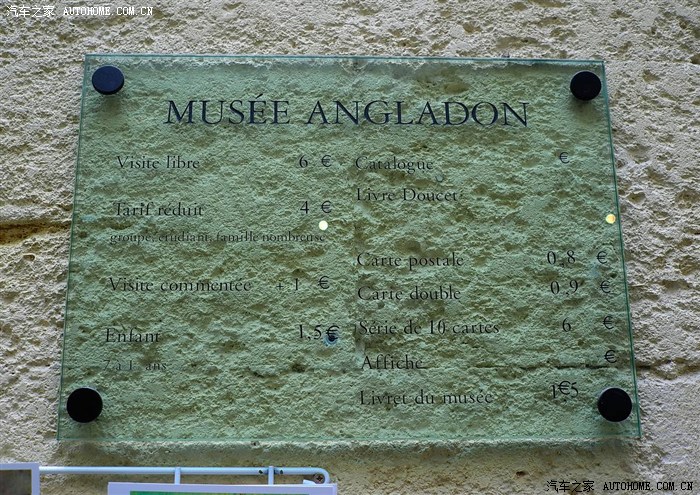 汽车之家 AUTOHOME.COM.CN
MUSÉE ANGLADON
Visite libre 6 €
Tarif réduit 4 €
groupe, étudiant, famille nombreuse
Visite commentée + 1 €
Enfant 1,5 €
7 à 1 ans
Catalogue €
Livre Doucet
Carte postale 0,8 €
Carte double 0,9 €
Série de 10 cartes 6 €
Affiche €
Livret du musée 1€5
汽车之家 AUTOHOME.COM.CN